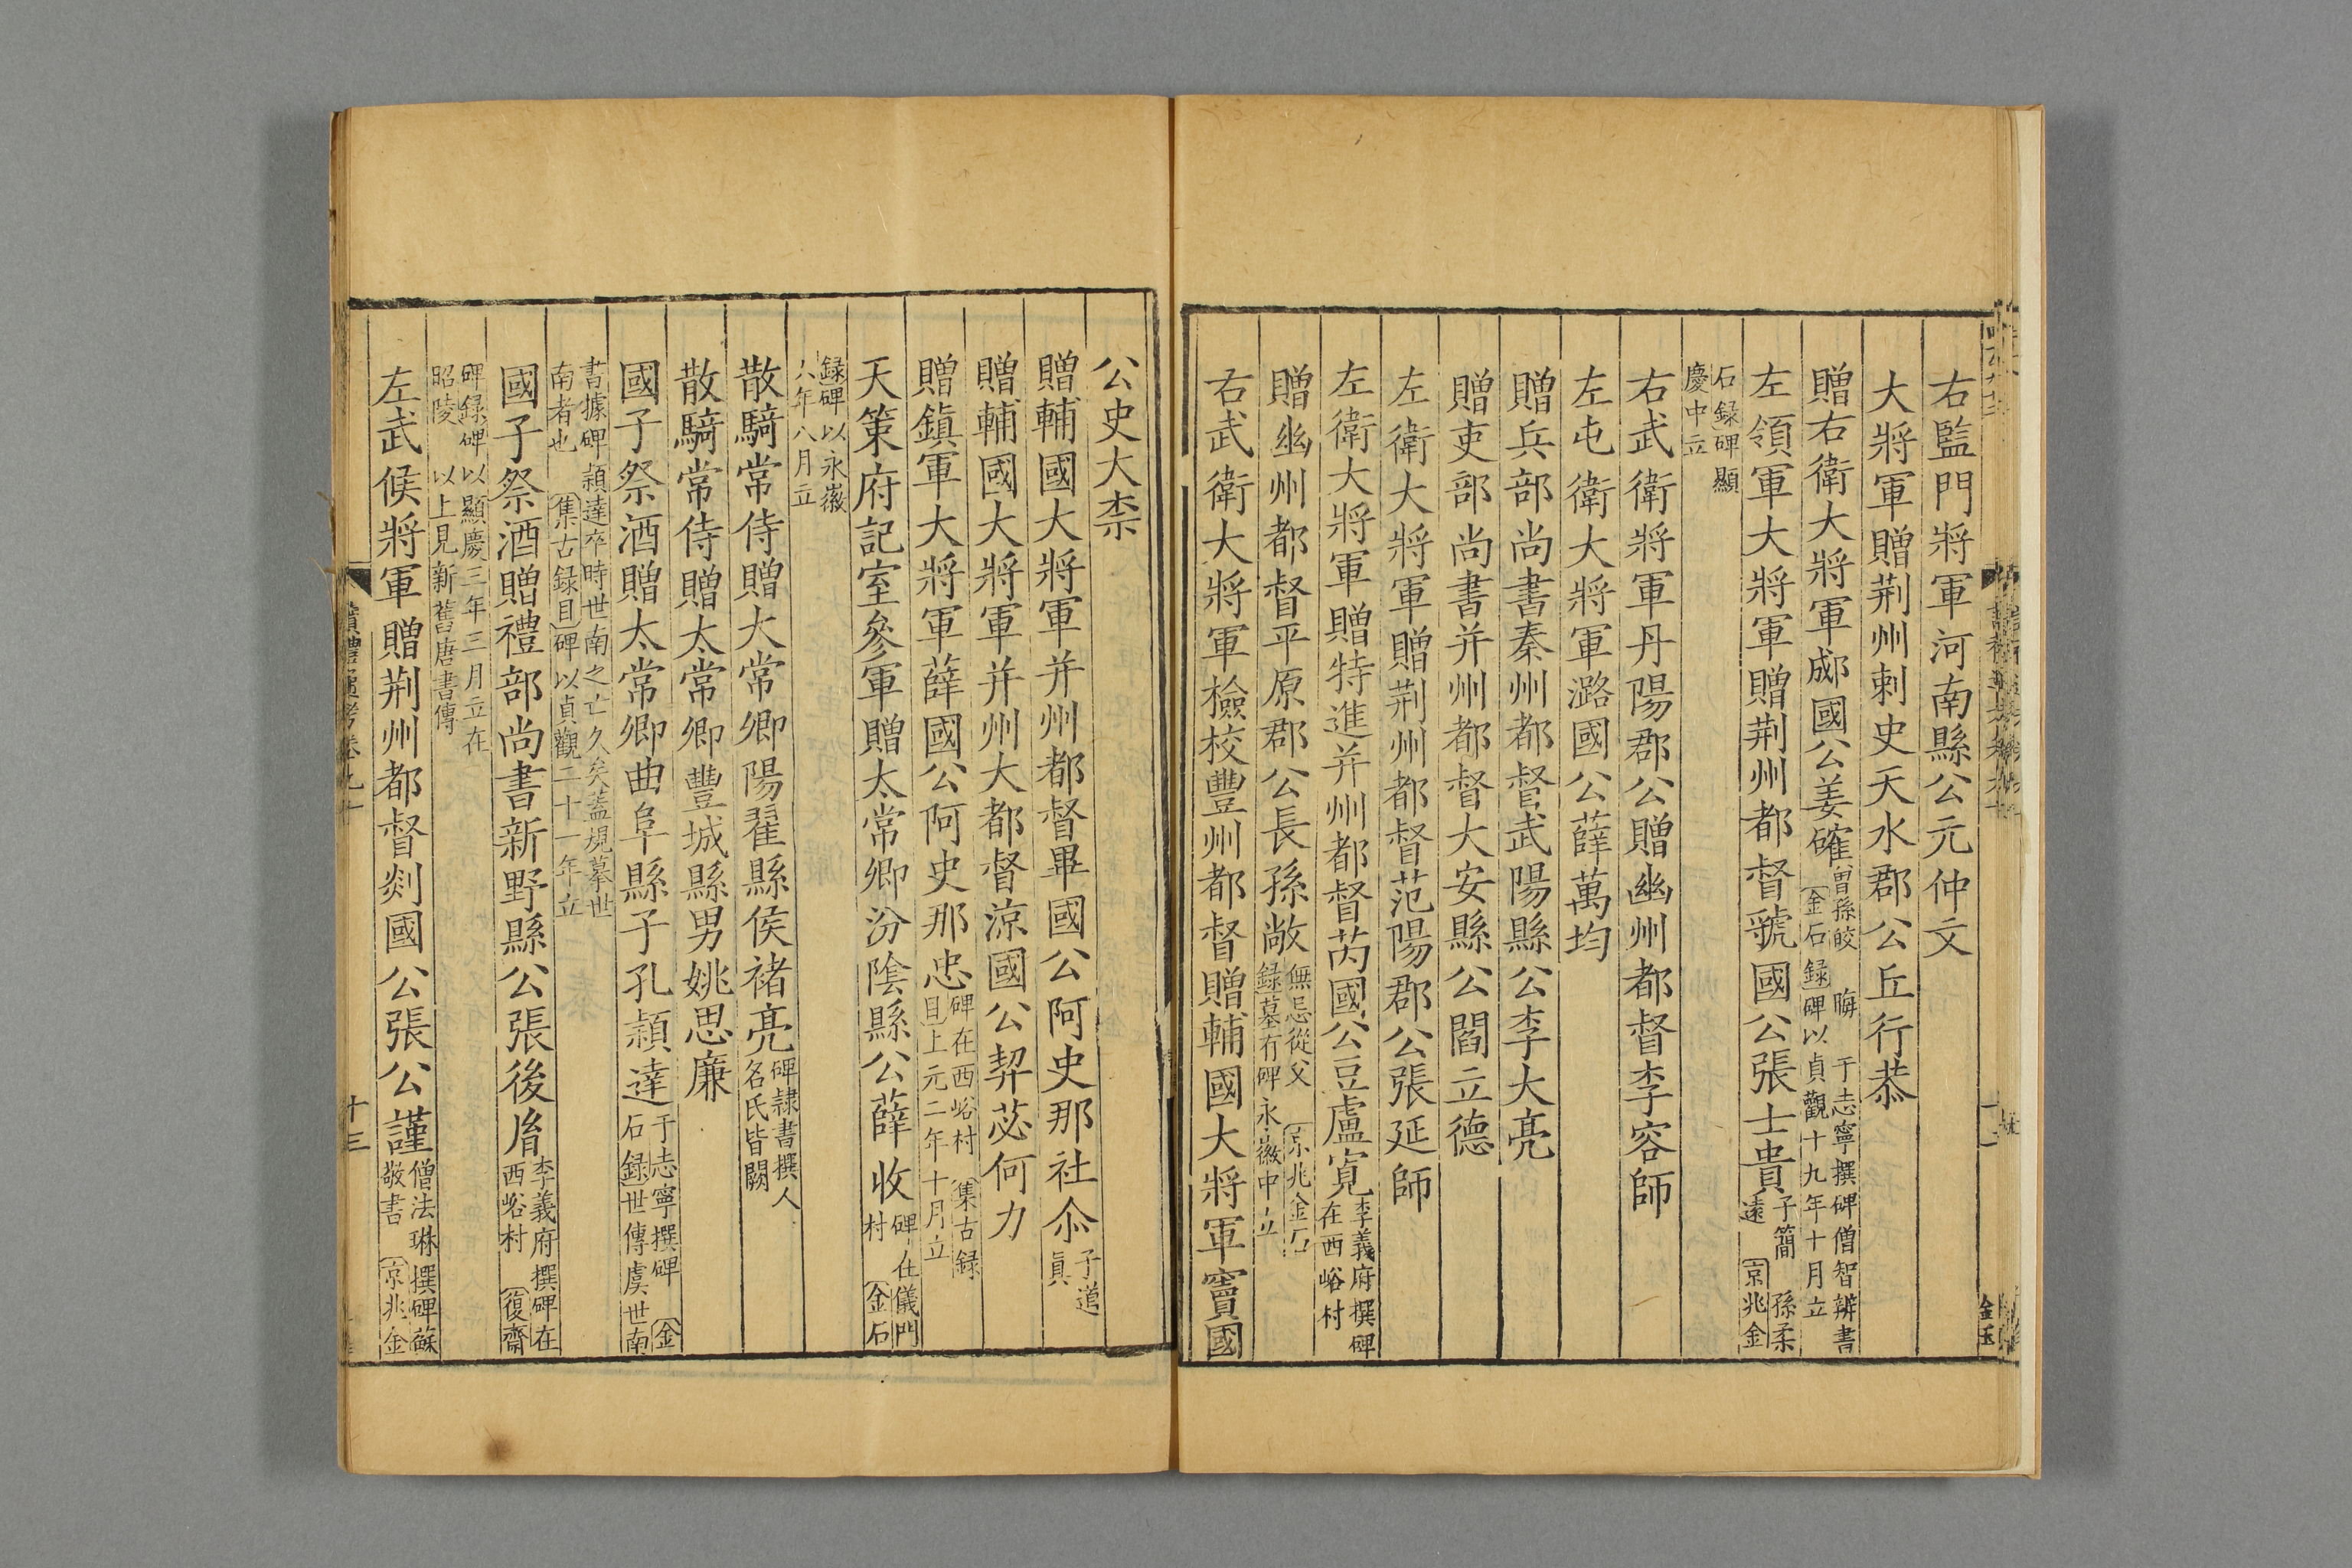 右監門將軍河南縣公元仲文
大將軍贈荆州刺史天水郡公丘行恭
贈右衛大將軍郕國公姜確曾孫皎 晦 于志寧撰碑僧智辨書
金石録碑以貞觀十九年十月立
左領軍大將軍贈荆州都督虢國公張士貴子簡 孫柔
遠 京兆金
石録碑顯
慶中立
右武衛將軍丹陽郡公贈幽州都督李容師
左屯衛大將軍潞國公薛萬均
贈兵部尚書秦州都督武陽縣公李大亮
贈吏部尚書并州都督大安縣公閻立德
左衛大將軍贈荆州都督范陽郡公張延師
左衛大將軍贈特進并州都督芮國公豆盧寛李義府撰碑
在西峪村
贈幽州都督平原郡公長孫敞無忌從父 京兆金石
録墓有碑永徽中立
右武衛大將軍檢校豐州都督贈輔國大將軍竇國
公史大柰
贈輔國大將軍并州都督畢國公阿史那社尒子道
眞
贈輔國大將軍并州大都督涼國公契苾何力
贈鎮軍大將軍薛國公阿史那忠碑在西峪村 集古録
目上元二年十月立
天策府記室參軍贈太常卿汾陰縣公薛收碑在儀門
村 金石
録碑以永徽
六年八月立
散騎常侍贈太常卿陽翟縣侯褚亮碑隷書撰人
名氏皆闕
散騎常侍贈太常卿豐城縣男姚思廉
國子祭酒贈太常卿曲阜縣子孔頴達于志寧撰碑 金
石録世傳虞世南
書據碑頴達卒時世南之亡久矣蓋規摹世
南者也 集古録目碑以貞觀二十一年立
國子祭酒贈禮部尚書新野縣公張後胤李義府撰碑在
西峪村 復齋
碑録碑以顯慶三年三月立在
昭陵 以上見新舊唐書傳
左武候將軍贈荆州都督郯國公張公謹僧法琳撰碑蘇
敬書 京兆金
十三
金玉